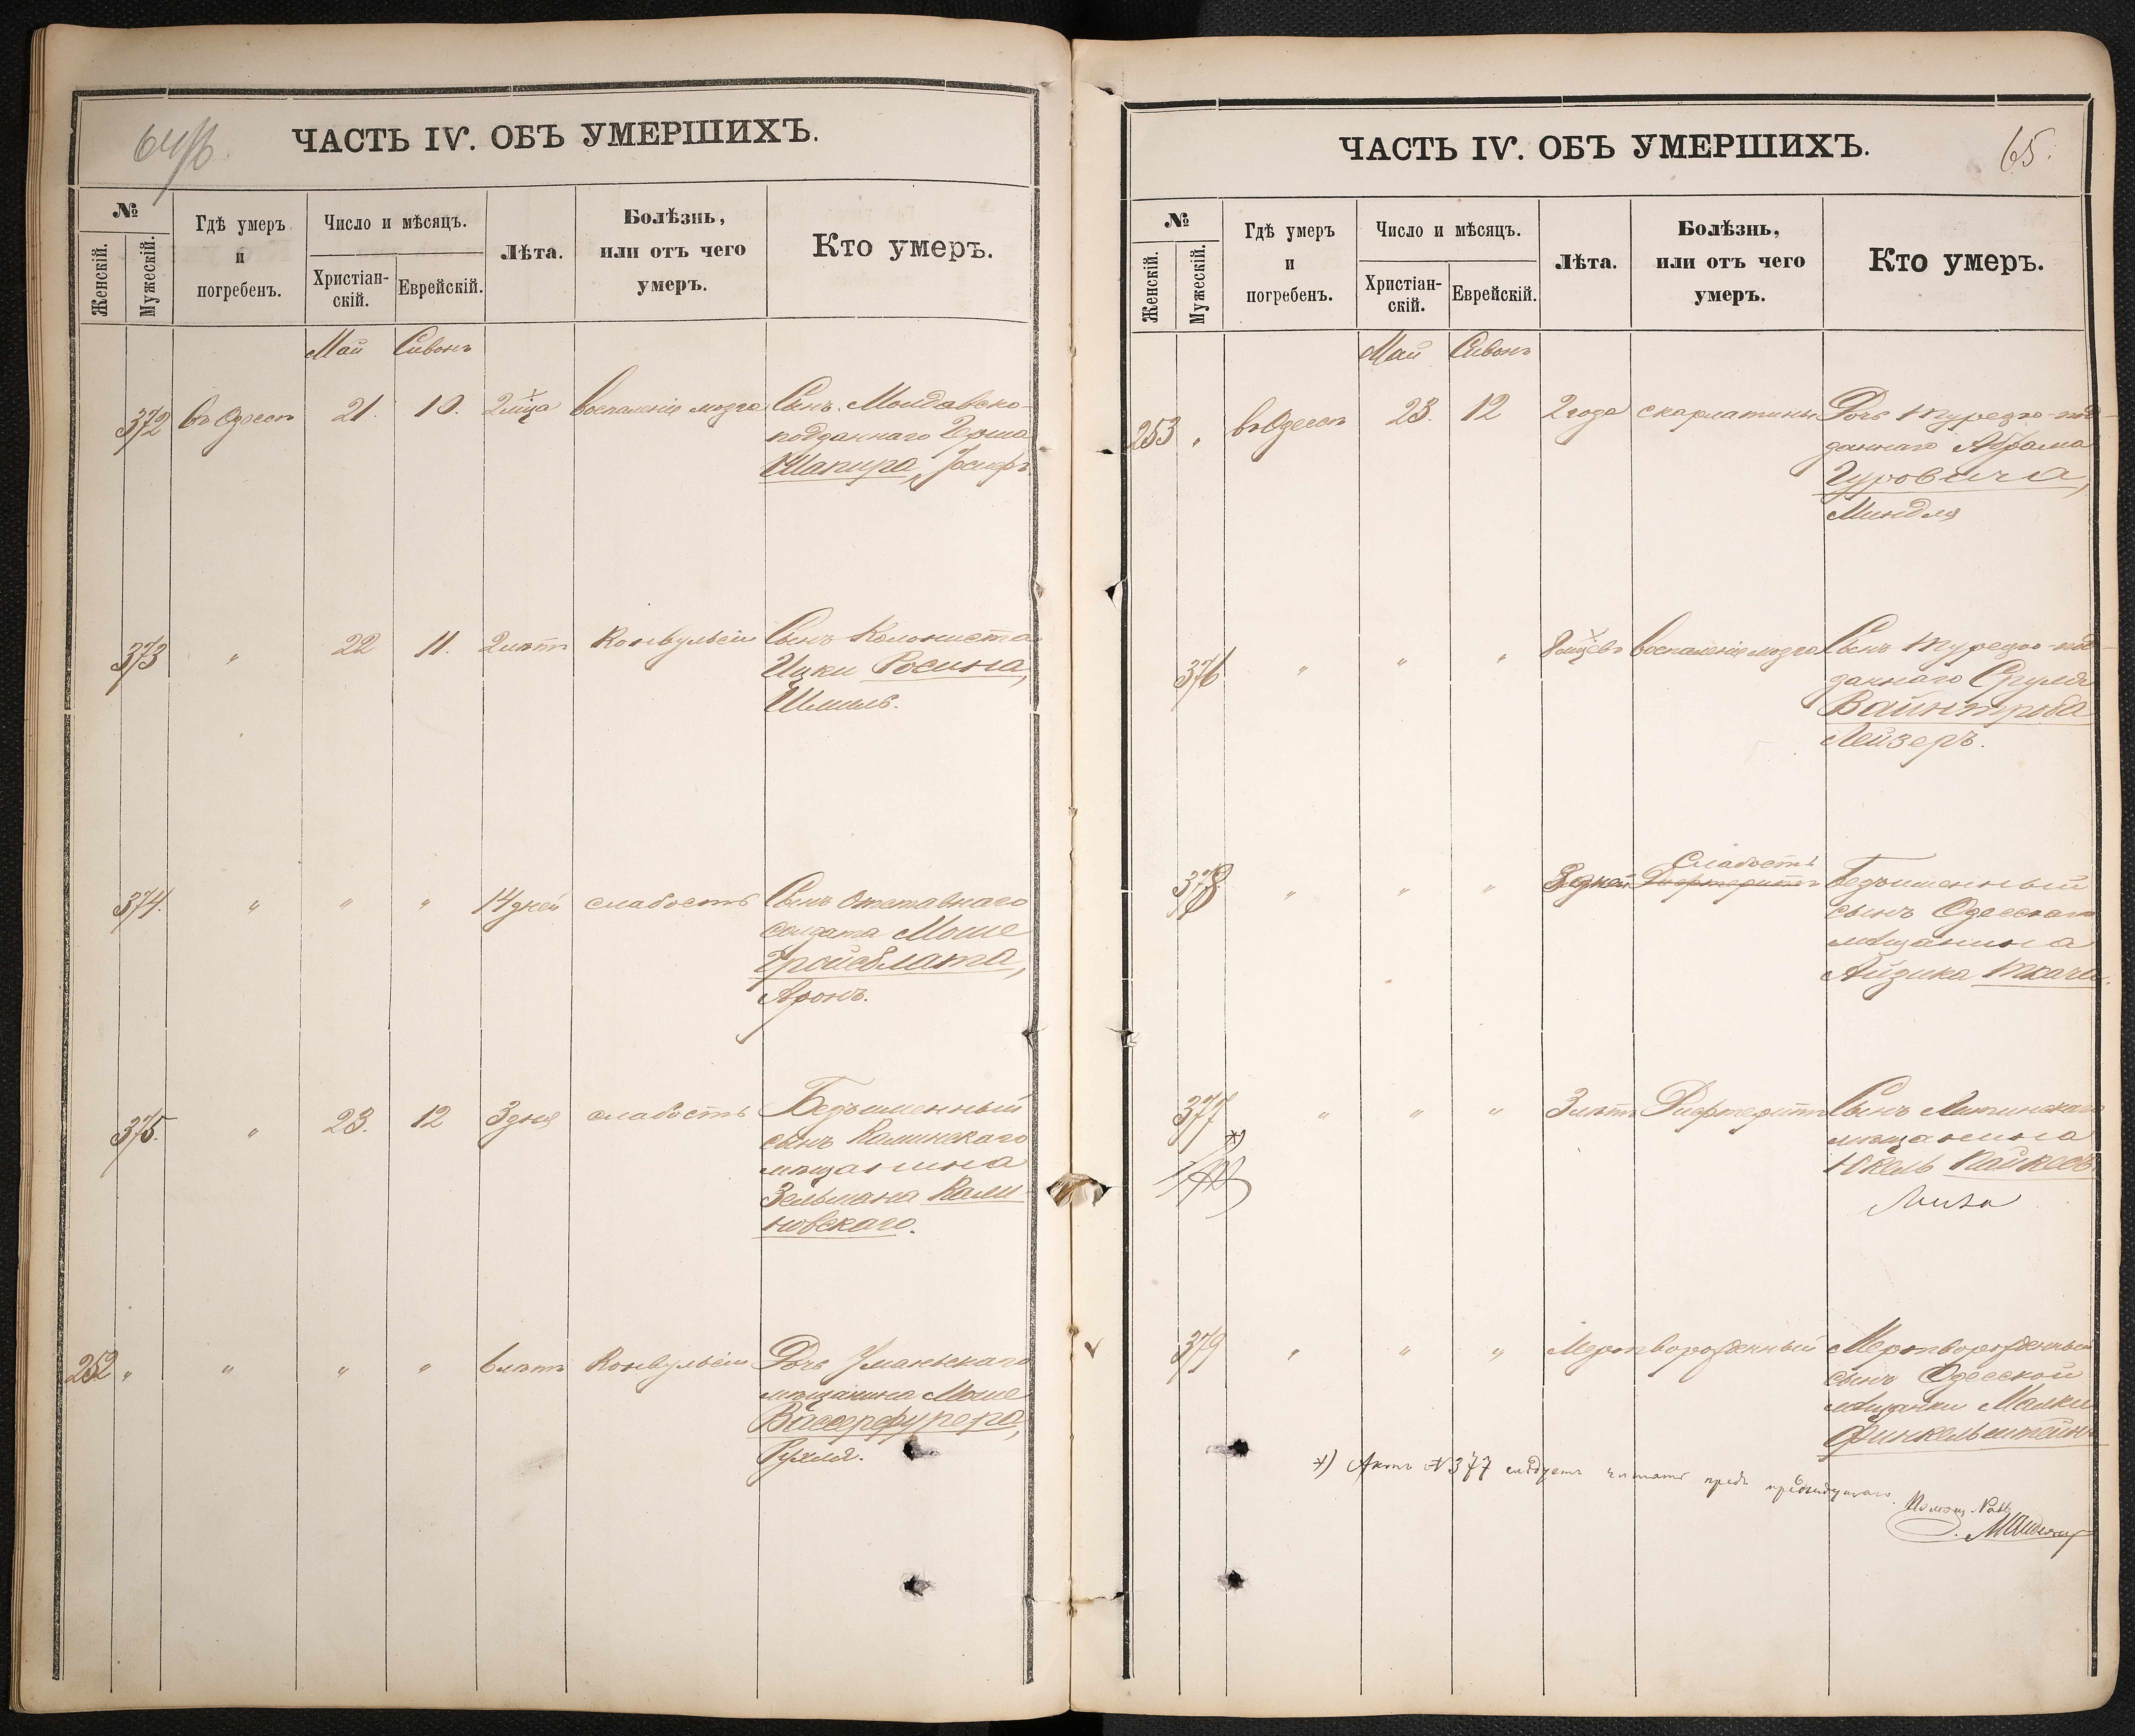 64/б
ЧАСТЬ IV. ОБЪ УМЕРШИХЪ.
№
Женскій.
Мужескій.
Гдѣ умеръ
и
погребенъ.
Число и мѣсяцъ.
Христіан-
скій.
Еврейскій.
Лѣта.
Болѣзнь,
или отъ чего
умеръ.
Кто умеръ.
Май Сивонъ
372 въ Одессѣ 21. 10. 2 мѣца воспаленіе мозга Сынъ Молдавско-
подданнаго Герша
Шапира, Іосифъ.
373 " 22 11. 2 лѣтъ Конвульсіи Сынъ Колониста
Ицки Росина,
Шмиль.
374. " " " 14 дней слабость Сынъ Отставнаго
солдата Моше
Гройсблата,
Аронъ.
375. " 23. 12 3 дня слабость Безъименный
сынъ Калинскаго
мѣщанина
Зельмана Кали-
новскаго.
252 " " " " 6 лѣтъ Конвульсіи Дочь Уманьскаго
мѣщанина Моше
Вассерфурера,
Рухля.
ЧАСТЬ IV. ОБЪ УМЕРШИХЪ.
65.
№
Женскій.
Мужескій.
Гдѣ умеръ
и
погребенъ.
Число и мѣсяцъ.
Христіан-
скій.
Еврейскій.
Лѣта.
Болѣзнь,
или отъ чего
умеръ.
Кто умеръ.
Май Сивонъ
253 " въ Одессѣ 23. 12 2 года скарлатины Дочь Турецко-под-
даннаго Абрама
Гуровича,
Миндля
376 " " " 8 мѣцевъ воспаленіе мозга Сынъ Турецко-под-
даннаго Сруля
Вайнтроба
Лейзеръ.
Слабость
378 " " " 3 дней Дифтеритъ Безъименный
сынъ Одесскаго
мѣщанина
Айзика Ткача.
377 " " " 3 лѣтъ Дифтеритъ Сынъ
мѣщанина
Юкель Пайкесъ
*)
379 " " " Мертворожденный Мертворожденный
сынъ Одесской
мѣщанки Малки
Финкельштейнъ
*) Актъ № 377 слѣдуетъ читать предъ предыдущаго.
Помощ. Рав.